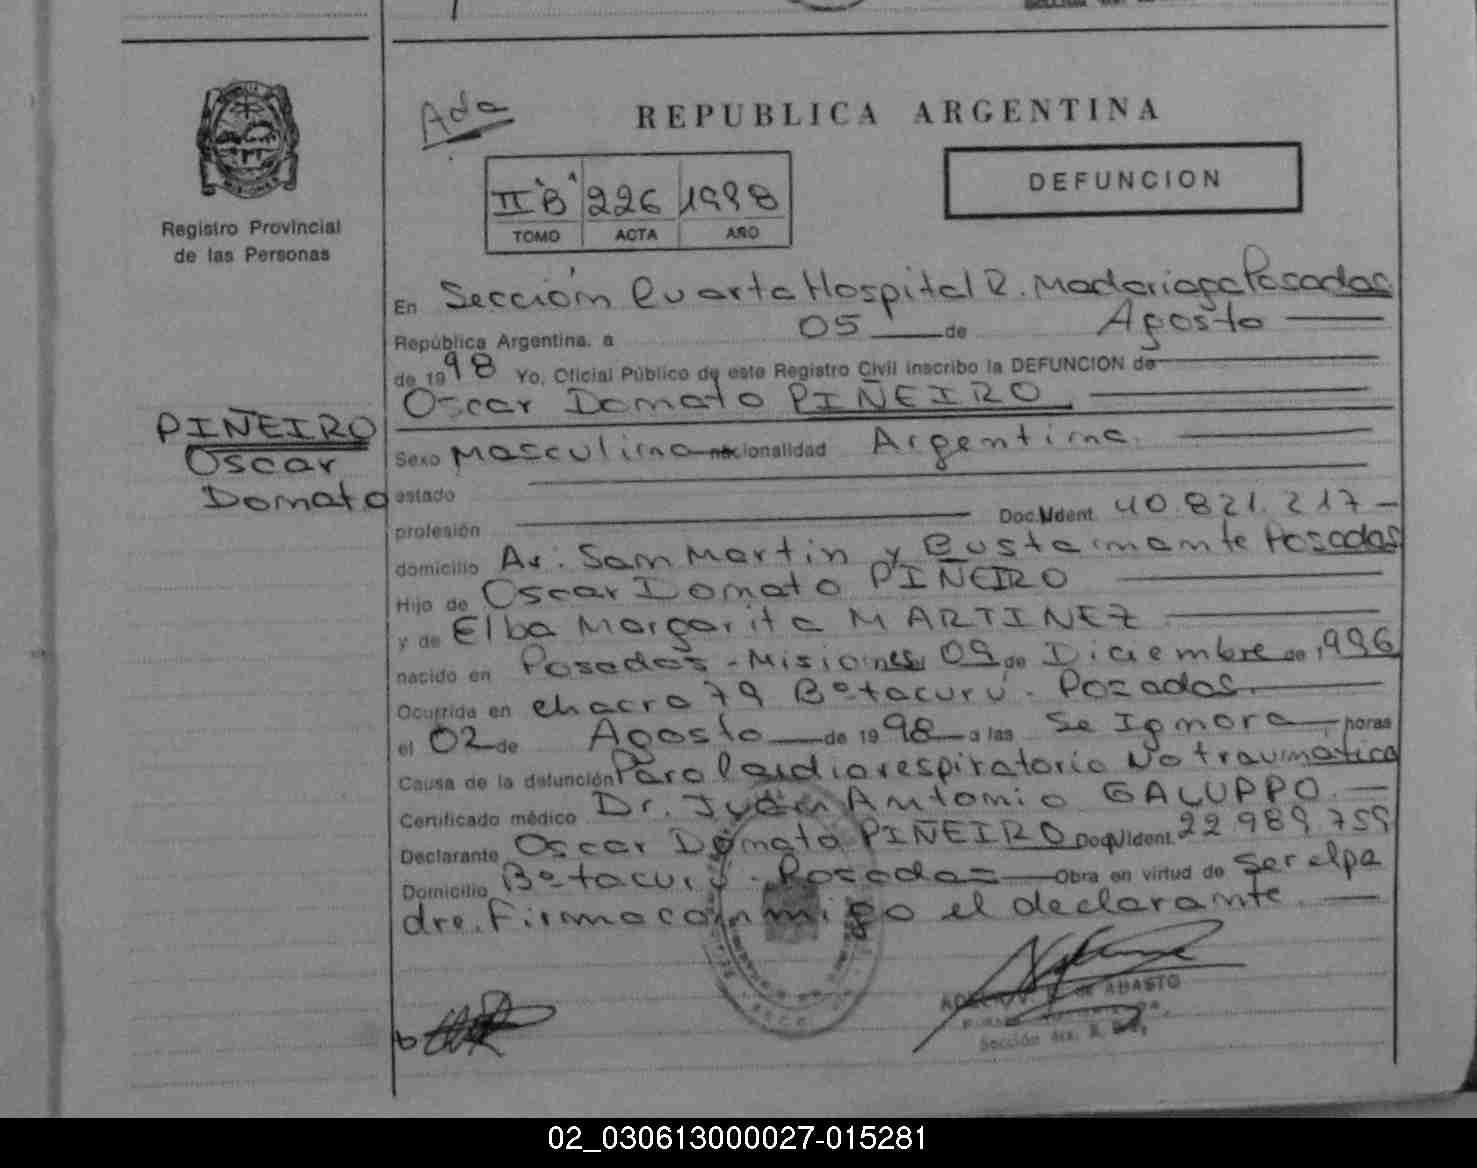 Ada
REPUBLICA ARGENTINA
DEFUNCION
II "B" 226 1998
TOMO ACTA AÑO
Registro Provincial
de las Personas
En Sección Cuarta Hospital R. Madariaga Posadas
República Argentina, a 05 de Agosto
de 1998 Yo, Oficial Público de este Registro Civil inscribo la DEFUNCION de
Oscar Donato PIÑEIRO
PIÑEIRO
Oscar
Donato
Sexo Masculino nacionalidad Argentina
estado
profesión Doc. Ident. 40.821.217
domicilio Av. San Martin y Bustamante Posadas
Hijo de Oscar Donato PIÑEIRO
y de Elba Margarita MARTINEZ
nacido en Posadas - Misiones 09 de Diciembre de 1996
Ocurrida en chacra 79 Bº Tacurú - Posadas
el 02 de Agosto de 1998 a las Se Ignora horas
Causa de la defunción Paro Cardiorespiratorio No traumatico
Certificado médico Dr. Juan Antonio GALUPPO
Declarante Oscar Donato PIÑEIRO Doc. Ident. 22.989.759
Domicilio Bº tacurú - Posadas Obra en virtud de Ser el pa
dre. Firma conmigo el declarante.
DE ABASTO
Sección 4ta.
02_030613000027-015281